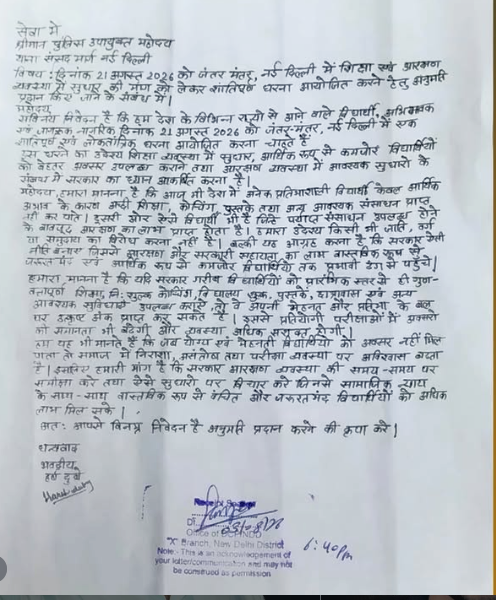 सेवा में
श्रीमान पुलिस उपायुक्त महोदय
थाना संसद मार्ग नई दिल्ली
विषय : दिनांक 21 अगस्त 2026 को जंतर मंतर, नई दिल्ली में शिक्षा एवं आरक्षण
व्यवस्था में सुधार की मांग को लेकर शांतिपूर्ण धरना आयोजित करने हेतु अनुमति
प्रदान किए जाने के संबंध में।
महोदय,
सविनय निवेदन है कि हम देश के विभिन्न राज्यों से आने वाले विद्यार्थी, अभिभावक
एवं जागरूक नागरिक दिनांक 21 अगस्त 2026 को जंतर-मंतर, नई दिल्ली में एक
शांतिपूर्ण एवं लोकतांत्रिक धरना आयोजित करना चाहते हैं
इस धरने का उद्देश्य शिक्षा व्यवस्था में सुधार, आर्थिक रूप से कमजोर विद्यार्थियों
को बेहतर अवसर उपलब्ध कराने तथा आरक्षण व्यवस्था में आवश्यक सुधारों के
संबंध में सरकार का ध्यान आकर्षित करना है।
महोदय, हमारा मानना है कि आज भी देश में अनेक प्रतिभाशाली विद्यार्थी केवल आर्थिक
अभाव के कारण अच्छी शिक्षा, कोचिंग, पुस्तकें तथा अन्य आवश्यक संसाधन प्राप्त
नहीं कर पाते। दूसरी ओर ऐसे विद्यार्थी भी हैं जिन्हें पर्याप्त संसाधन उपलब्ध होने
के बावजूद आरक्षण का लाभ प्राप्त होता है। हमारा उद्देश्य किसी भी जाति, वर्ग
या समुदाय का विरोध करना नहीं है। बल्की यह आग्रह करना है कि सरकार ऐसी
नीति बनाए जिससे आरक्षण और सरकारी सहायता का लाभ वास्तविक रूप से
जरूरतमंद एवं आर्थिक रूप से कमजोर विद्यार्थियों तक प्रभावी ढंग से पहुंचे।
हमारा मानना है कि यदि सरकार गरीब विद्यार्थियों को प्रारंभिक स्तर से ही गुण-
वत्तापूर्ण शिक्षा, नि: शुल्क कोचिंग, विद्यालय शुल्क, पुस्तकें, छात्रावास एवं अन्य
आवश्यक सुविधाएँ उपलब्ध कराये तो वे अपनी मेहनत और प्रतिभा के बल
पर उत्कृष्ट अंक प्राप्त कर सकते हैं। इससे प्रतियोगी परीक्षाओं में अवसरों
की समानता भी बढ़ेगी और व्यवस्था अधिक सशक्त होगी।
हम यह भी मानते हैं कि जब योग्य एवं मेहनती विद्यार्थियों को अवसर नहीं मिल
पाता तो समाज में निराशा, असंतोष तथा परीक्षा व्यवस्था पर अविश्वास बढ़ता
है। इसलिए हमारी मांग है कि सरकार आरक्षण व्यवस्था की समय-समय पर
समीक्षा करे तथा ऐसे सुधारों पर विचार करे जिनसे सामाजिक न्याय
के साथ-साथ वास्तविक रूप से वंचित और जरूरतमंद विद्यार्थियों को अधिक
लाभ मिल सके।
अत: आपसे विनम्र निवेदन है अनुमति प्रदान करने की कृपा करें।
धन्यवाद
भवदीय
हर्ष दुबे
Office of DCP/NDD
"X" Branch, New Delhi District
Note:- This is an acknowledgement of
your letter/communication and may not
be construed as permission
6:40 Pm